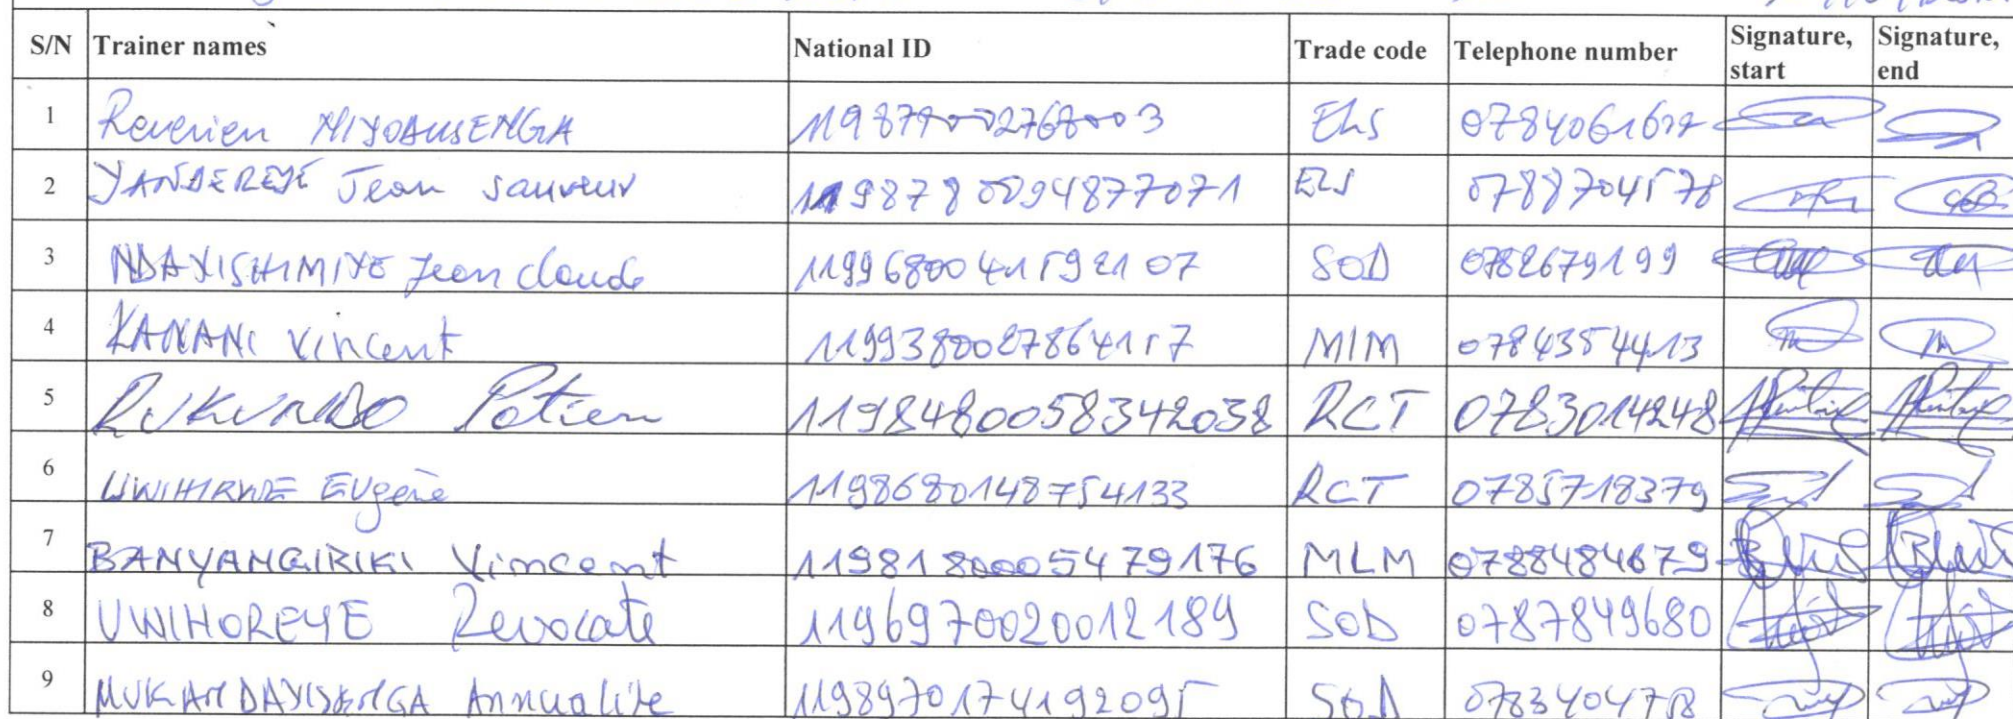 S/N Trainer names National ID Trade code Telephone number Signature, start Signature, end
1 Reverien NIYODUSENGA ELS
2 YANDEREYE Jean Sauveur 1198780094877071 ELS 0788704578
3 NDAYISHIMIYE Jean Claude 1199680041592107 SOD 0782679199
4 KANANI Vincent 1199380027864157 MIM 0784354413
5 RUKUNDO Potien 1198480058342038 RCT 0783014248
6 UWIHIRWE Eugène 1198680148754133 RCT 0785718379
7 BANYANGIRIKI Vincent 1198180005479176 MLM 0788484679
8 UWIHOREYE Revocate 1196970020012189 SOD 0787849680
9 MUKANDAYISENGA Annualite 1198970174192095 SOD